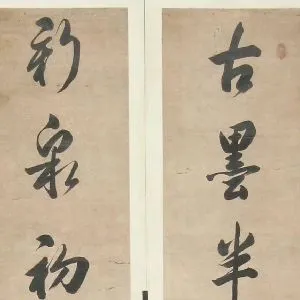 古墨半
新泉初